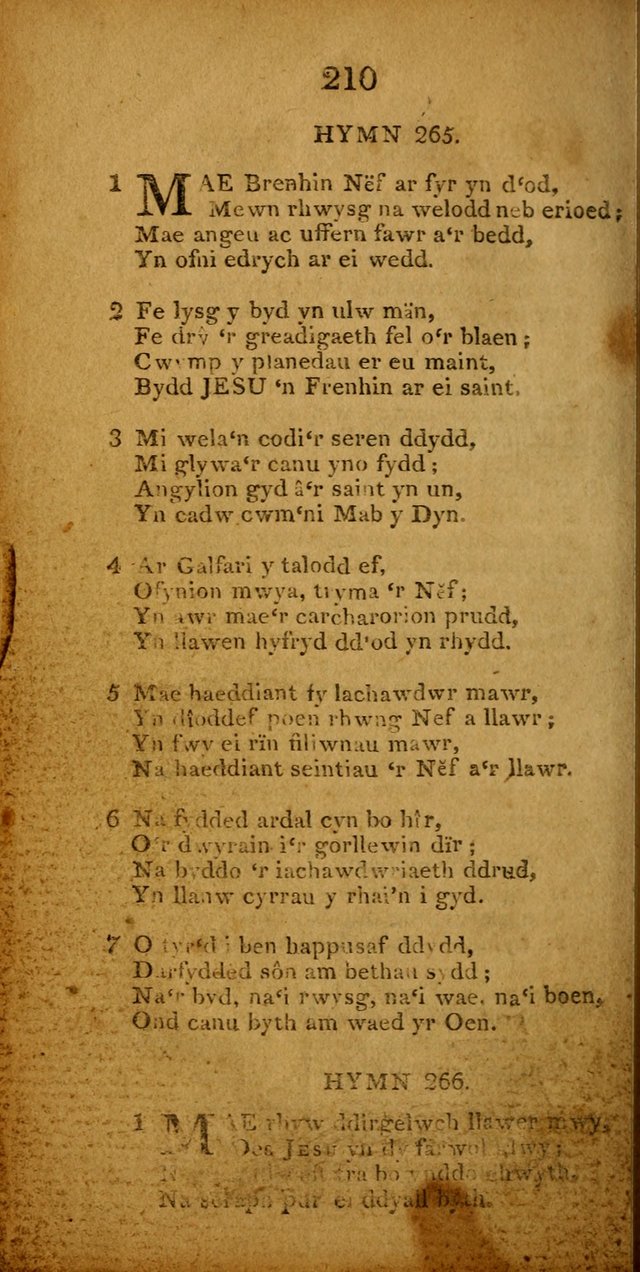 210
HYMN 265.
1 MAE Brenhin Nëf ar fyr yn d‘od,
Mewn rhwysg na welodd neb erioed;
Mae angeu ac uffern fawr a‘r bedd,
Yn ofni edrych ar ei wedd.
2 Fe lysg y byd yn ulw män,
Fe drŷ ‘r greadigaeth fel o‘r blaen;
Cwymp y planedau er eu maint,
Bydd JESU ‘n Frenhin ar ei saint.
3 Mi wela‘n codi‘r seren ddydd,
Mi glywa‘r canu yno fydd;
Angylion gyd â‘r saint yn un,
Yn cadw cwm‘ni Mab y Dyn.
4 Ar Galfari y talodd ef,
Ofynion mwya, tryma ‘r Nëf;
Yn awr mae‘r carcharorion prudd,
Yn llawen hyfryd dd'od yn rhydd.
5 Mae haeddiant fy Iachawdwr mawr,
Yn dioddef poen rhwng Nef a llawr;
Yn fwy ei rïn filiwnau mawr,
Na haeddiant seintiau ‘r Nëf a‘r llawr.
6 Na fydded ardal cyn bo hîr,
O‘r dwyrain i‘r gorllewin dïr;
Na byddo ‘r iachawdwriaeth ddrud,
Yn llanw cyrrau y rhai’n i gyd.
7 O tyr‘d i ben happusaf ddydd,
Darfydded sôn am bethau sydd;
Na‘r byd, na‘i rwysg, na‘i wae, na‘i boen,
Ond canu byth am waed yr Oen.
HYMN 266.
1 MAE rhyw ddirgelwch llawer mwy,
JESU yn dy
bo
Na ddyall byth.